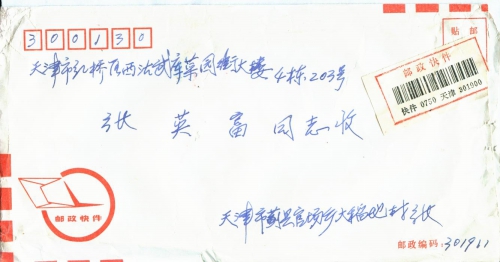 300130
贴邮
天津市红桥区西沽武库菜园街大楼4栋.203号
邮政快件
快件 0750 天津 301900
张英富同志收
邮政快件
天津市蓟县官场乡大稻地村张
邮政编码:301911